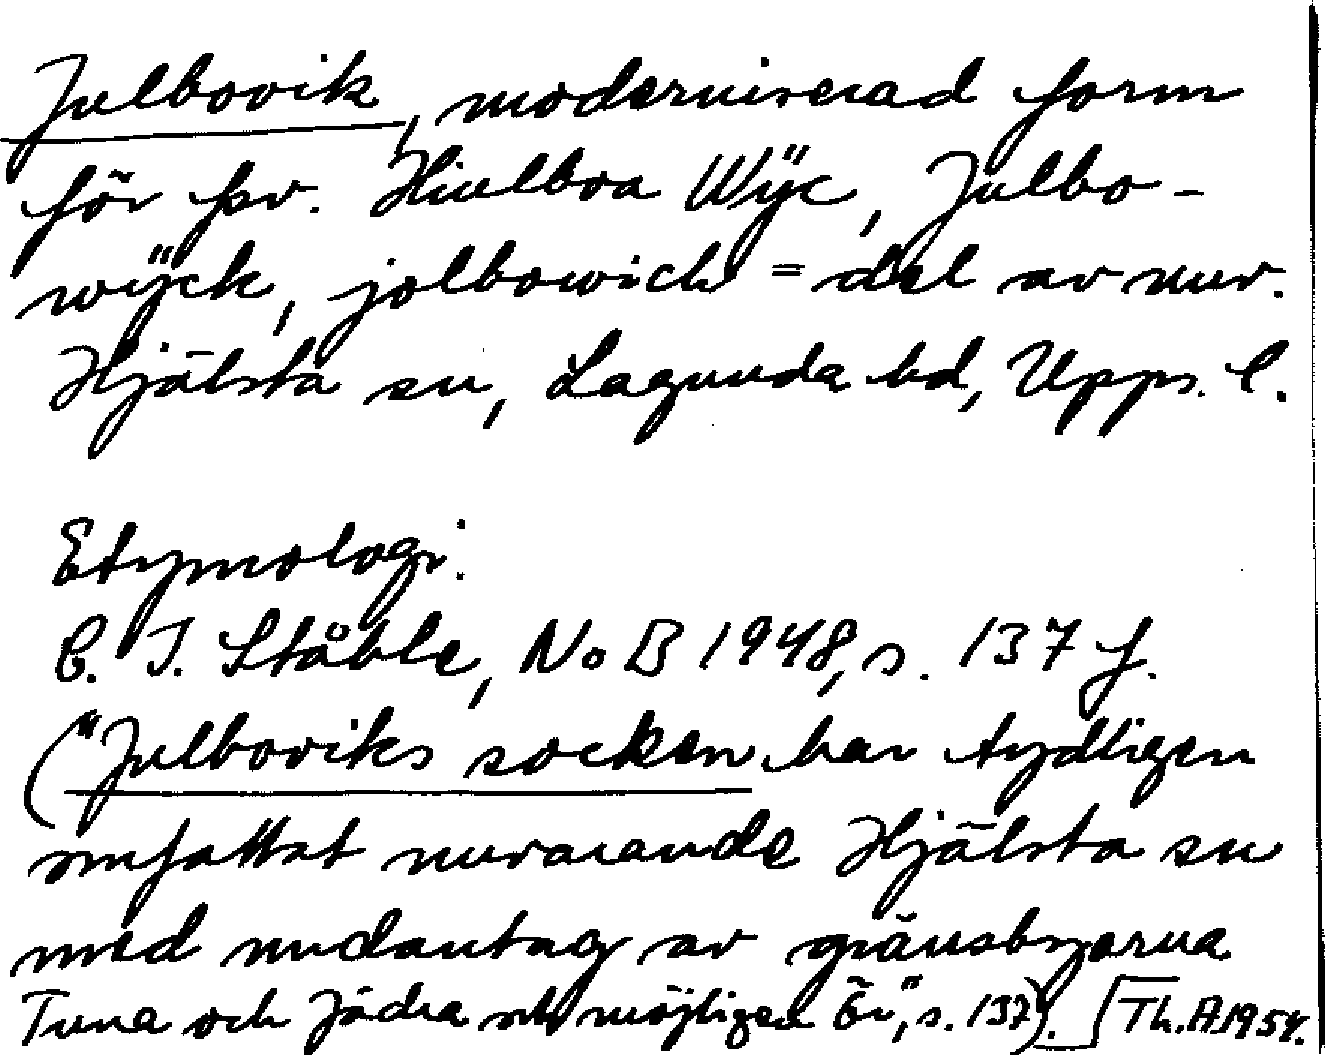 Julbovik, moderniserad form
för þv. Hiulboa Wÿc, Julbo-
wÿck, jolbowich = del av nuv.
Hjälsta sn, Lagunda hd, Upps. l.
Etymologi:
C. I. Ståhle, NoB 1948, s. 137 f.
("Julboviks socken har tydligen
omfattat nuvarande Hjälsta sn
med undantag av gränsbyarna
Tuna och Jädra och möjligen Ev", s. 137). [Th.A 1954.